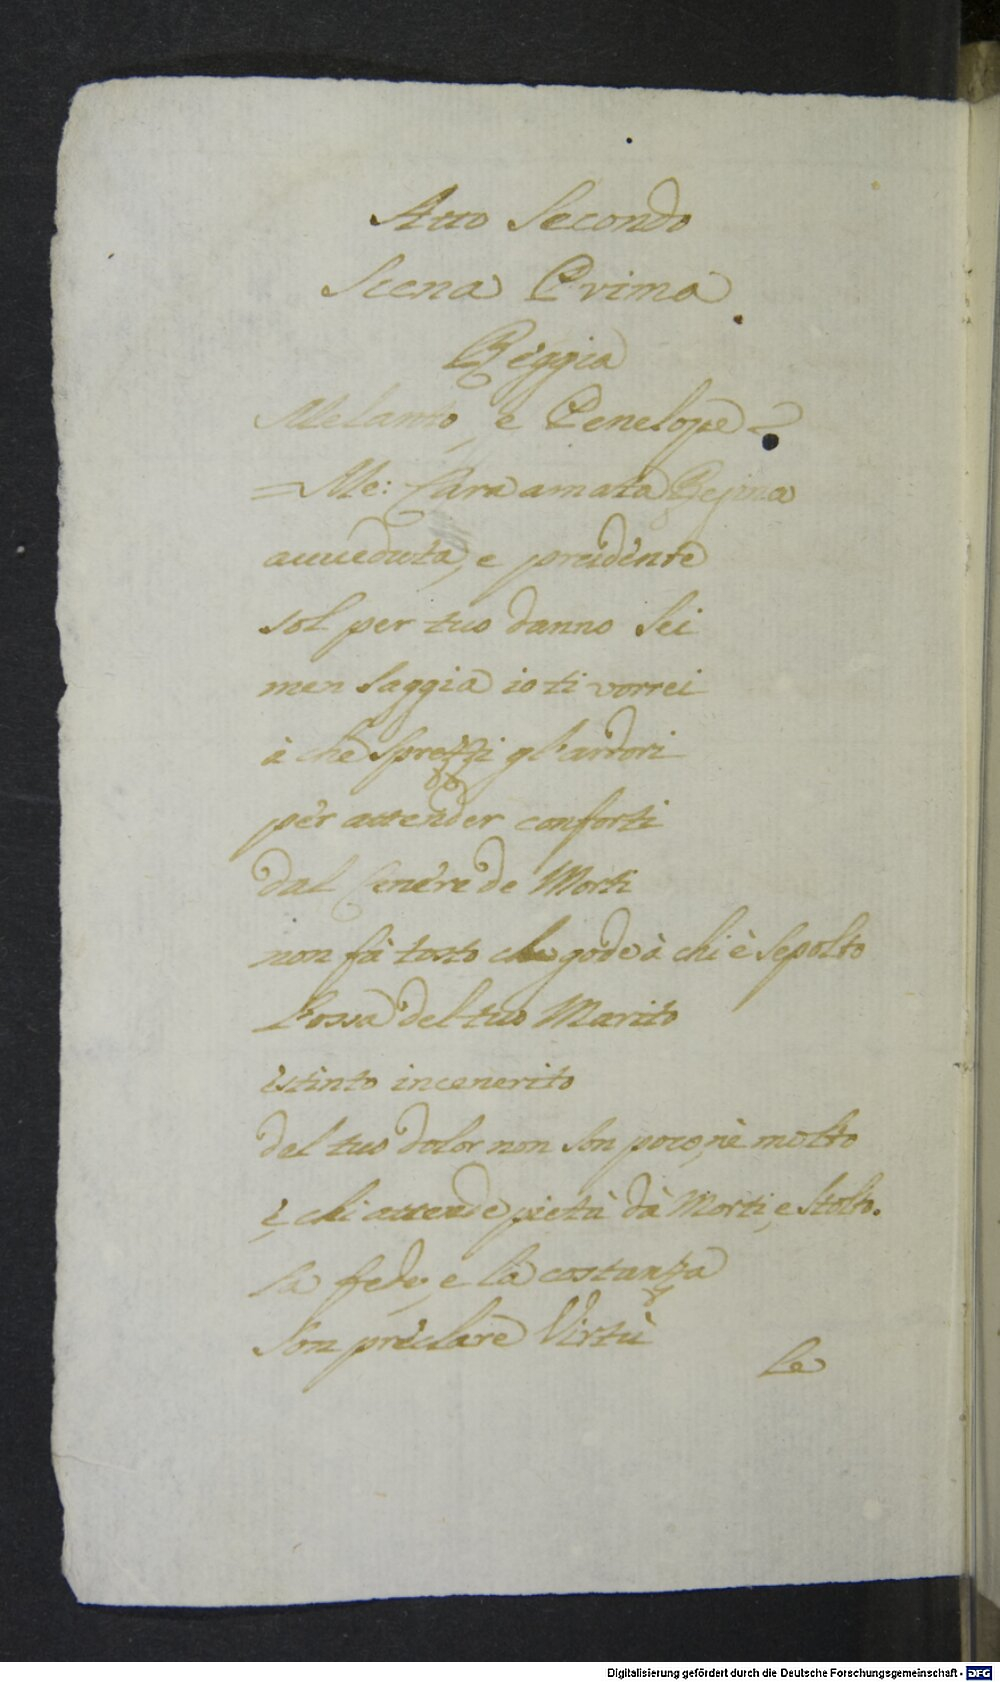 Atto Secondo
Scena Prima
Reggia
Melanto, e Penelope
Me: Cara amata Regina
auueduta, e prudente
sol per tuo danno sei
men saggia io ti vorrei
à che sprezzi gl'ardori
per attender conforti
dal Cenere de Morti
non fà torto che gode à chi è sepolto
L'ossa del tuo Marito
estinto incenerito
del tuo dolor non son poco, nè molto
e, chi attende pietà dà Morti, e stolto.
la fede, e la costanza
son preclare Virtù
Le
Digitalisierung gefördert durch die Deutsche Forschungsgemeinschaft - DFG